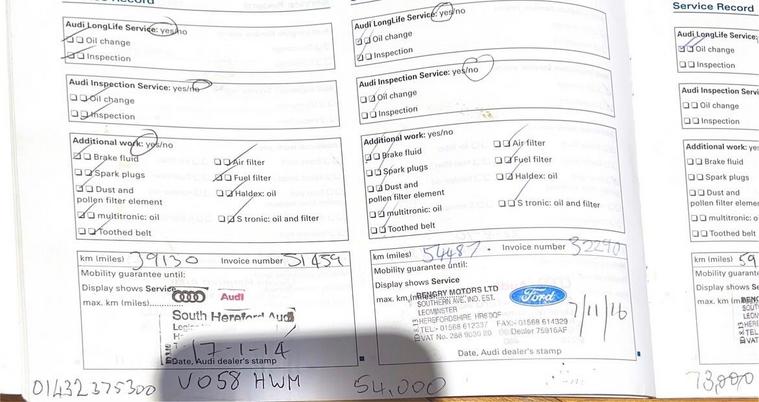 Audi LongLife Service: yes/no
Oil change
Inspection
Audi Inspection Service: yes/no
Oil change
Inspection
Additional work: yes/no
Brake fluid
Air filter
Spark plugs
Fuel filter
Dust and
pollen filter element
Haldex: oil
multitronic: oil
S tronic: oil and filter
Toothed belt
km (miles) 39130 Invoice number 51459
Mobility guarantee until:
Display shows Service
max. km (miles)
Audi
South Hereford Audi
17-1-14
Date, Audi dealer's stamp
01432375300 VO58 HWM
Audi LongLife Service: yes/no
Oil change
Inspection
Audi Inspection Service: yes/no
Oil change
Inspection
Additional work: yes/no
Brake fluid
Air filter
Spark plugs
Fuel filter
Dust and
pollen filter element
Haldex: oil
multitronic: oil
S tronic: oil and filter
Toothed belt
km (miles) 54487 Invoice number 32290
Mobility guarantee until:
Display shows Service
max. km (miles)
BENGRY MOTORS LTD
SOUTHERN AVE, IND. EST.
LEOMINSTER
HEREFORDSHIRE HR6 0QF
TEL:- 01568 612337 FAX:- 01568 614329
VAT No. 288 9030 20 Dealer 75916AF
Ford
7/11/16
Date, Audi dealer's stamp
54,000
Service Record
Audi LongLife Service:
Oil change
Inspection
Audi Inspection Servi
Oil change
Inspection
Additional work: ye
Brake fluid
Spark plugs
Dust and
pollen filter eleme
multitronic: o
Toothed belt
km (miles) 59
Mobility guarant
Display shows
max. km (m